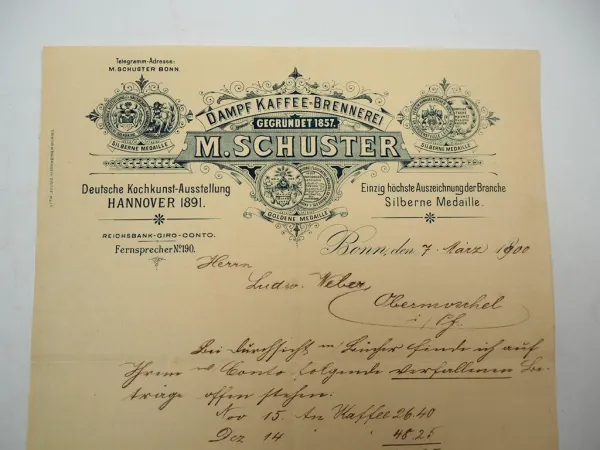 Telegramm-Adresse:
M. SCHUSTER BONN.
DAMPF KAFFEE-BRENNEREI
GEGRÜNDET 1857.
M. SCHUSTER
SILBERNE MEDAILLE
SILBERNE MEDAILLE
GOLDENE MEDAILLE
Deutsche Kochkunst-Ausstellung
HANNOVER 1891.
Einzig höchste Auszeichnung der Branche
Silberne Medaille.
REICHSBANK-GIRO-CONTO.
Fernsprecher No. 190.
Bonn, den 7. März 1900
Herrn
Ludw. Weber,
Obermoschel
i/Pf.
Bei Durchsicht m/ Bücher finde ich auf
Ihrem w Conto folgende verfallenen Be-
träge offen stehen:
Nov 15. An Kaffee 26.40
Dez 14 48.25